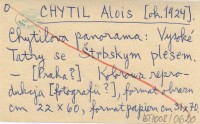 CHYTIL Alois [ok. 1924].
Chytilova panorama: Vysoké
Tatry se Štrbským plesem.
– [Praha?] Kolorowa repro-
dukcja [fotografii?], format obrazu
cm 22 x 60, format papieru cm 31x70